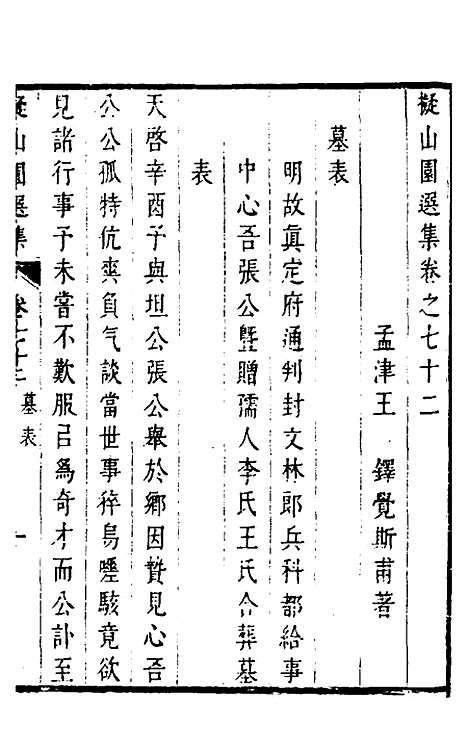 擬山園選集卷之七十二
孟津王鐸覺斯甫著
墓表
明故眞定府通判封文林郎兵科都給事
中心吾張公曁贈孺人李氏王氏合葬墓
表
天啓辛酉予與坦公張公舉於鄉因贄見心吾
公公孤特伉爽負气談當世事猝易嚄駭竟欲
見諸行事予未嘗不歎服㠯爲奇才而公訃至
擬山園選集
卷七十二
墓表
一